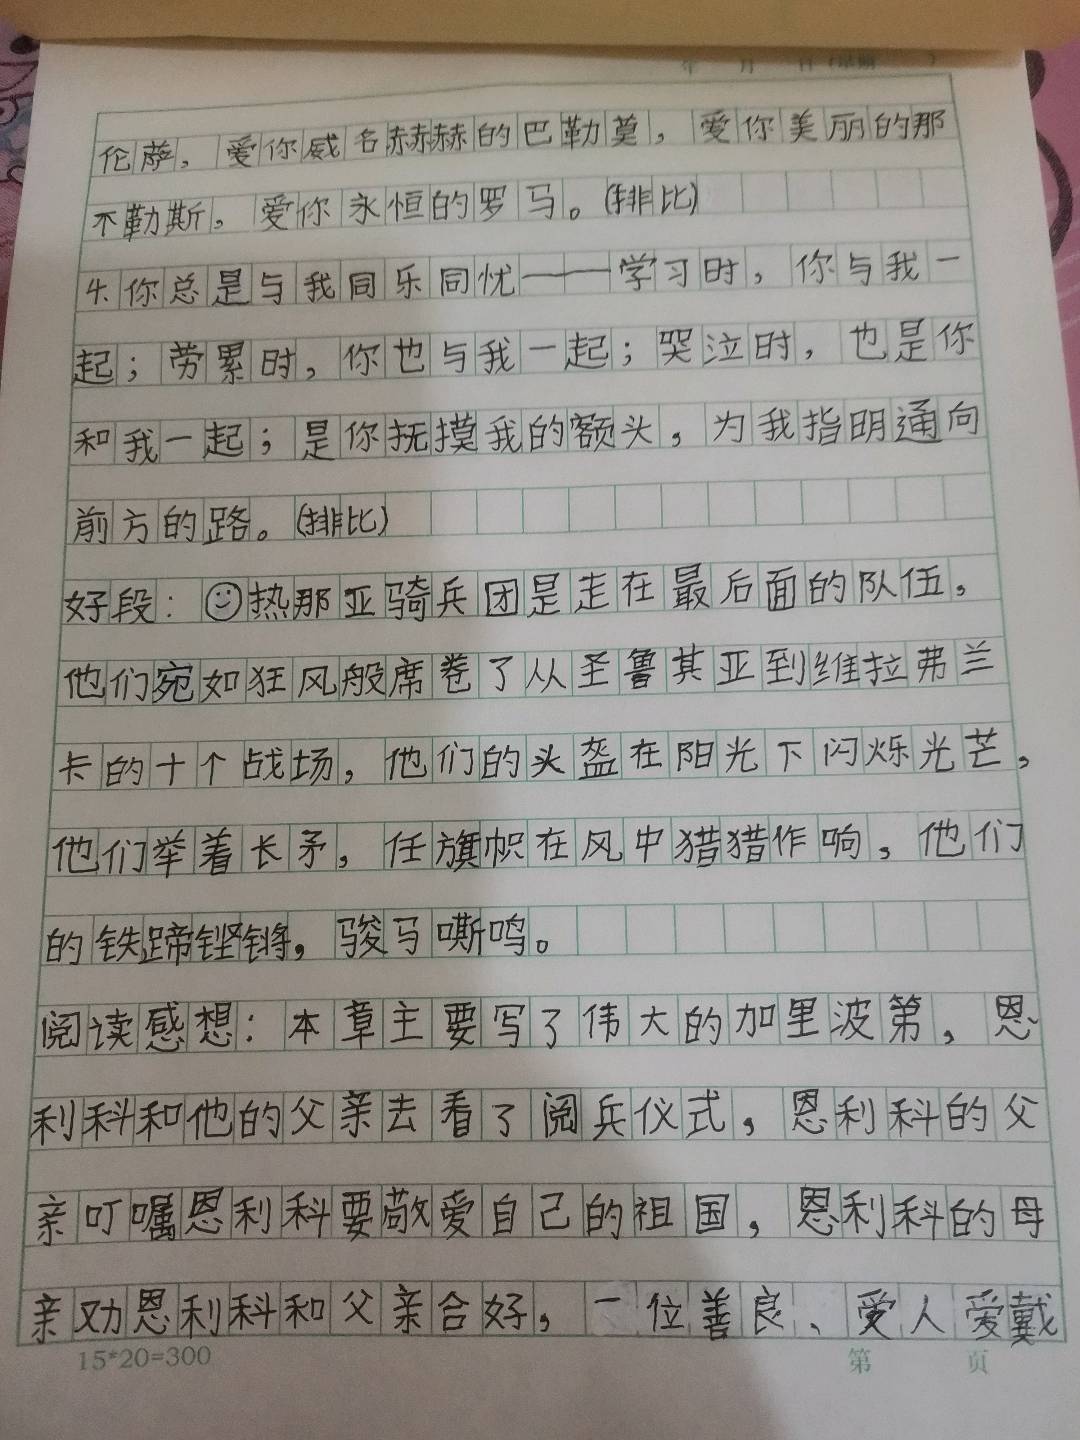 年 月 日(星期 )
伦萨，爱你威名赫赫的巴勒莫，爱你美丽的那
不勒斯，爱你永恒的罗马。(排比)
4.你总是与我同乐同忧——学习时，你与我一
起；劳累时，你也与我一起；哭泣时，也是你
和我一起；是你抚摸我的额头，为我指明通向
前方的路。(排比)
好段：☺热那亚骑兵团是走在最后面的队伍。
他们宛如狂风般席卷了从圣鲁其亚到维拉弗兰
卡的十个战场，他们的头盔在阳光下闪烁光芒，
他们举着长矛，任旗帜在风中猎猎作响，他们
的铁蹄铿锵，骏马嘶鸣。
阅读感想：本章主要写了伟大的加里波第，恩
利科和他的父亲去看了阅兵仪式，恩利科的父
亲叮嘱恩利科要敬爱自己的祖国，恩利科的母
亲劝恩利科和父亲合好，一位善良、受人爱戴
15*20=300 第 页